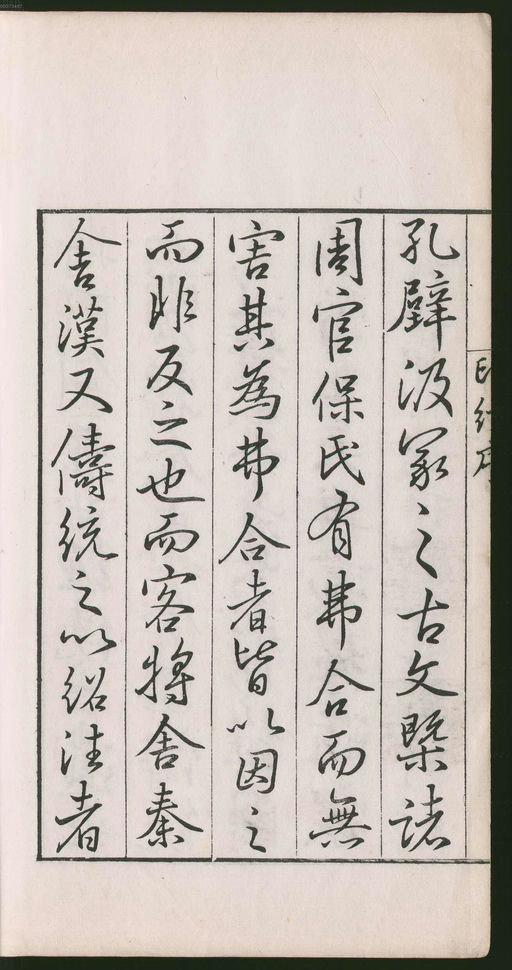 孔壁汲冢之古文槩諸
周官保氏有弗合而無
害其為弗合者皆以因之
而非反之也而客將舍秦
舍漢又儔統之以紹往者